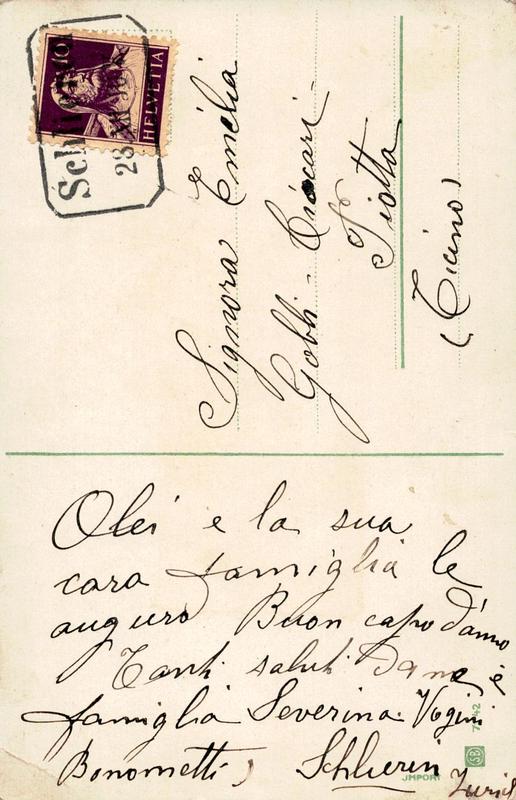 HELVETIA
10
Schlieren
23 XII
Signora Emelia
Gobbi -
Piotta
(Ticino)
Olei e la sua
cara famiglia le
auguro Buon capo d'anno
Tanti saluti Da me e
famiglia Severina Vogini
Bonometti, Schlieren
Zurich
IMPORT
SB